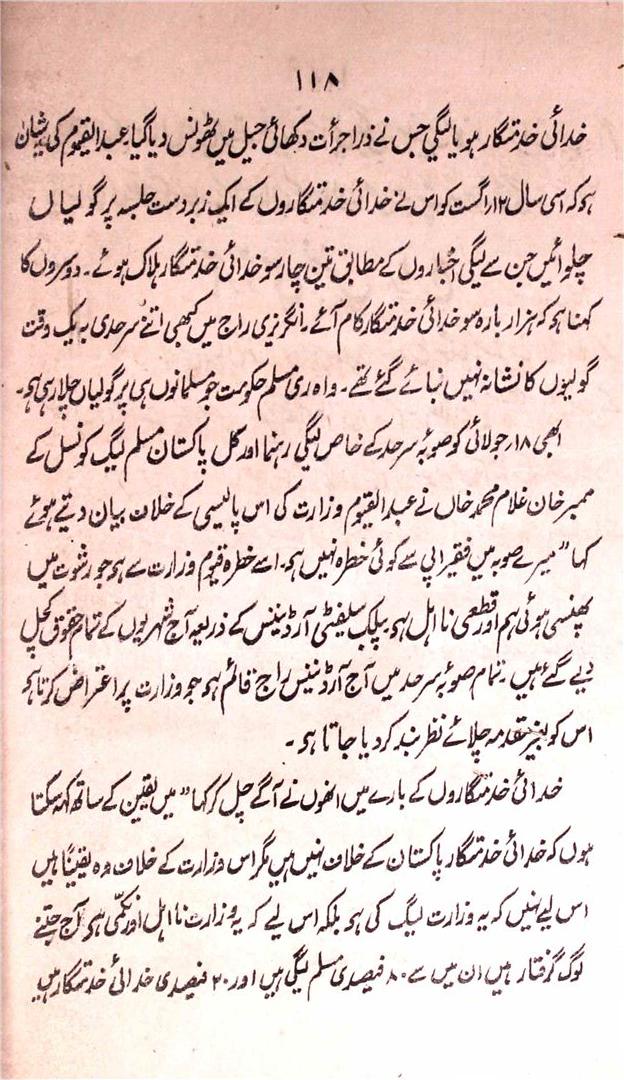 ۱۱۸
خدائی خدمتگار ہو یا لیگی جس نے ذرا جرأت دکھائی جیل میں ٹھونس دیا گیا عبدالقیوم کی شان
ہو کہ اسی سال ۱۲ اگست کو اس نے خدائی خدمتگاروں کے ایک زبردست جلسہ پر گولیاں
چلوائیں جن سے لیگی اخباروں کے مطابق تین چار سو خدائی خدمتگار ہلاک ہوئے۔ دوسروں کا
کہنا ہو کہ ہزار بارہ سو خدائی خدمتگار کام آئے۔ انگریزی راج میں کبھی اتنے سرحدی بہ یک وقت
گولیوں کا نشانہ نہیں بنائے گئے تھے۔ واہ ری مسلم حکومت جو مسلمانوں ہی پر گولیاں چلا رہی ہو۔
ابھی ۱۸ جولائی کو صوبۂ سرحد کے خاص لیگی رہنما اور کل پاکستان مسلم لیگ کونسل کے
ممبر خان غلام محمد خاں نے عبدالقیوم وزارت کی اس پالیسی کے خلاف بیان دیتے ہوئے
کہا "میرے صوبہ میں فقیر اپی سے کوئی خطرہ نہیں ہو۔ اسے خطرہ قیوم وزارت سے ہو جو رشوت میں
پھنسی ہوئی ہم اور قطعی نا اہل ہو پبلک سیفٹی آرڈیننس کے ذریعہ آج شہریوں کے تمام حقوق کچل
دیے گئے ہیں۔ تمام صوبۂ سرحد میں آج آرڈیننس راج قائم ہو جو وزارت پر اعتراض کرتا ہو
اس کو بغیر مقدمہ چلائے نظر بند کر دیا جاتا ہو۔
خدائی خدمتگاروں کے بارے میں انھوں نے آگے چل کر کہا "میں یقین کے ساتھ کہہ سکتا
ہوں کہ خدائی خدمتگار پاکستان کے خلاف نہیں ہیں مگر اس وزارت کے خلاف وہ یقیناً ہیں
اس لیے نہیں کہ یہ وزارت لیگ کی ہو بلکہ اس لیے کہ یہ وزارت نا اہل اور نکمّی ہو آج جتنے
لوگ گرفتار ہیں ان میں سے ۸۰ فیصدی مسلم لیگی ہیں اور ۲۰ فیصدی خدائی خدمتگار ہیں